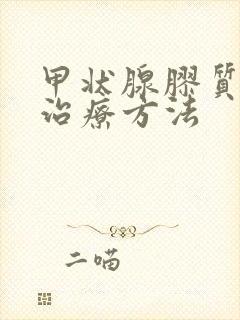 甲状腺膠質
治療方法
二喵